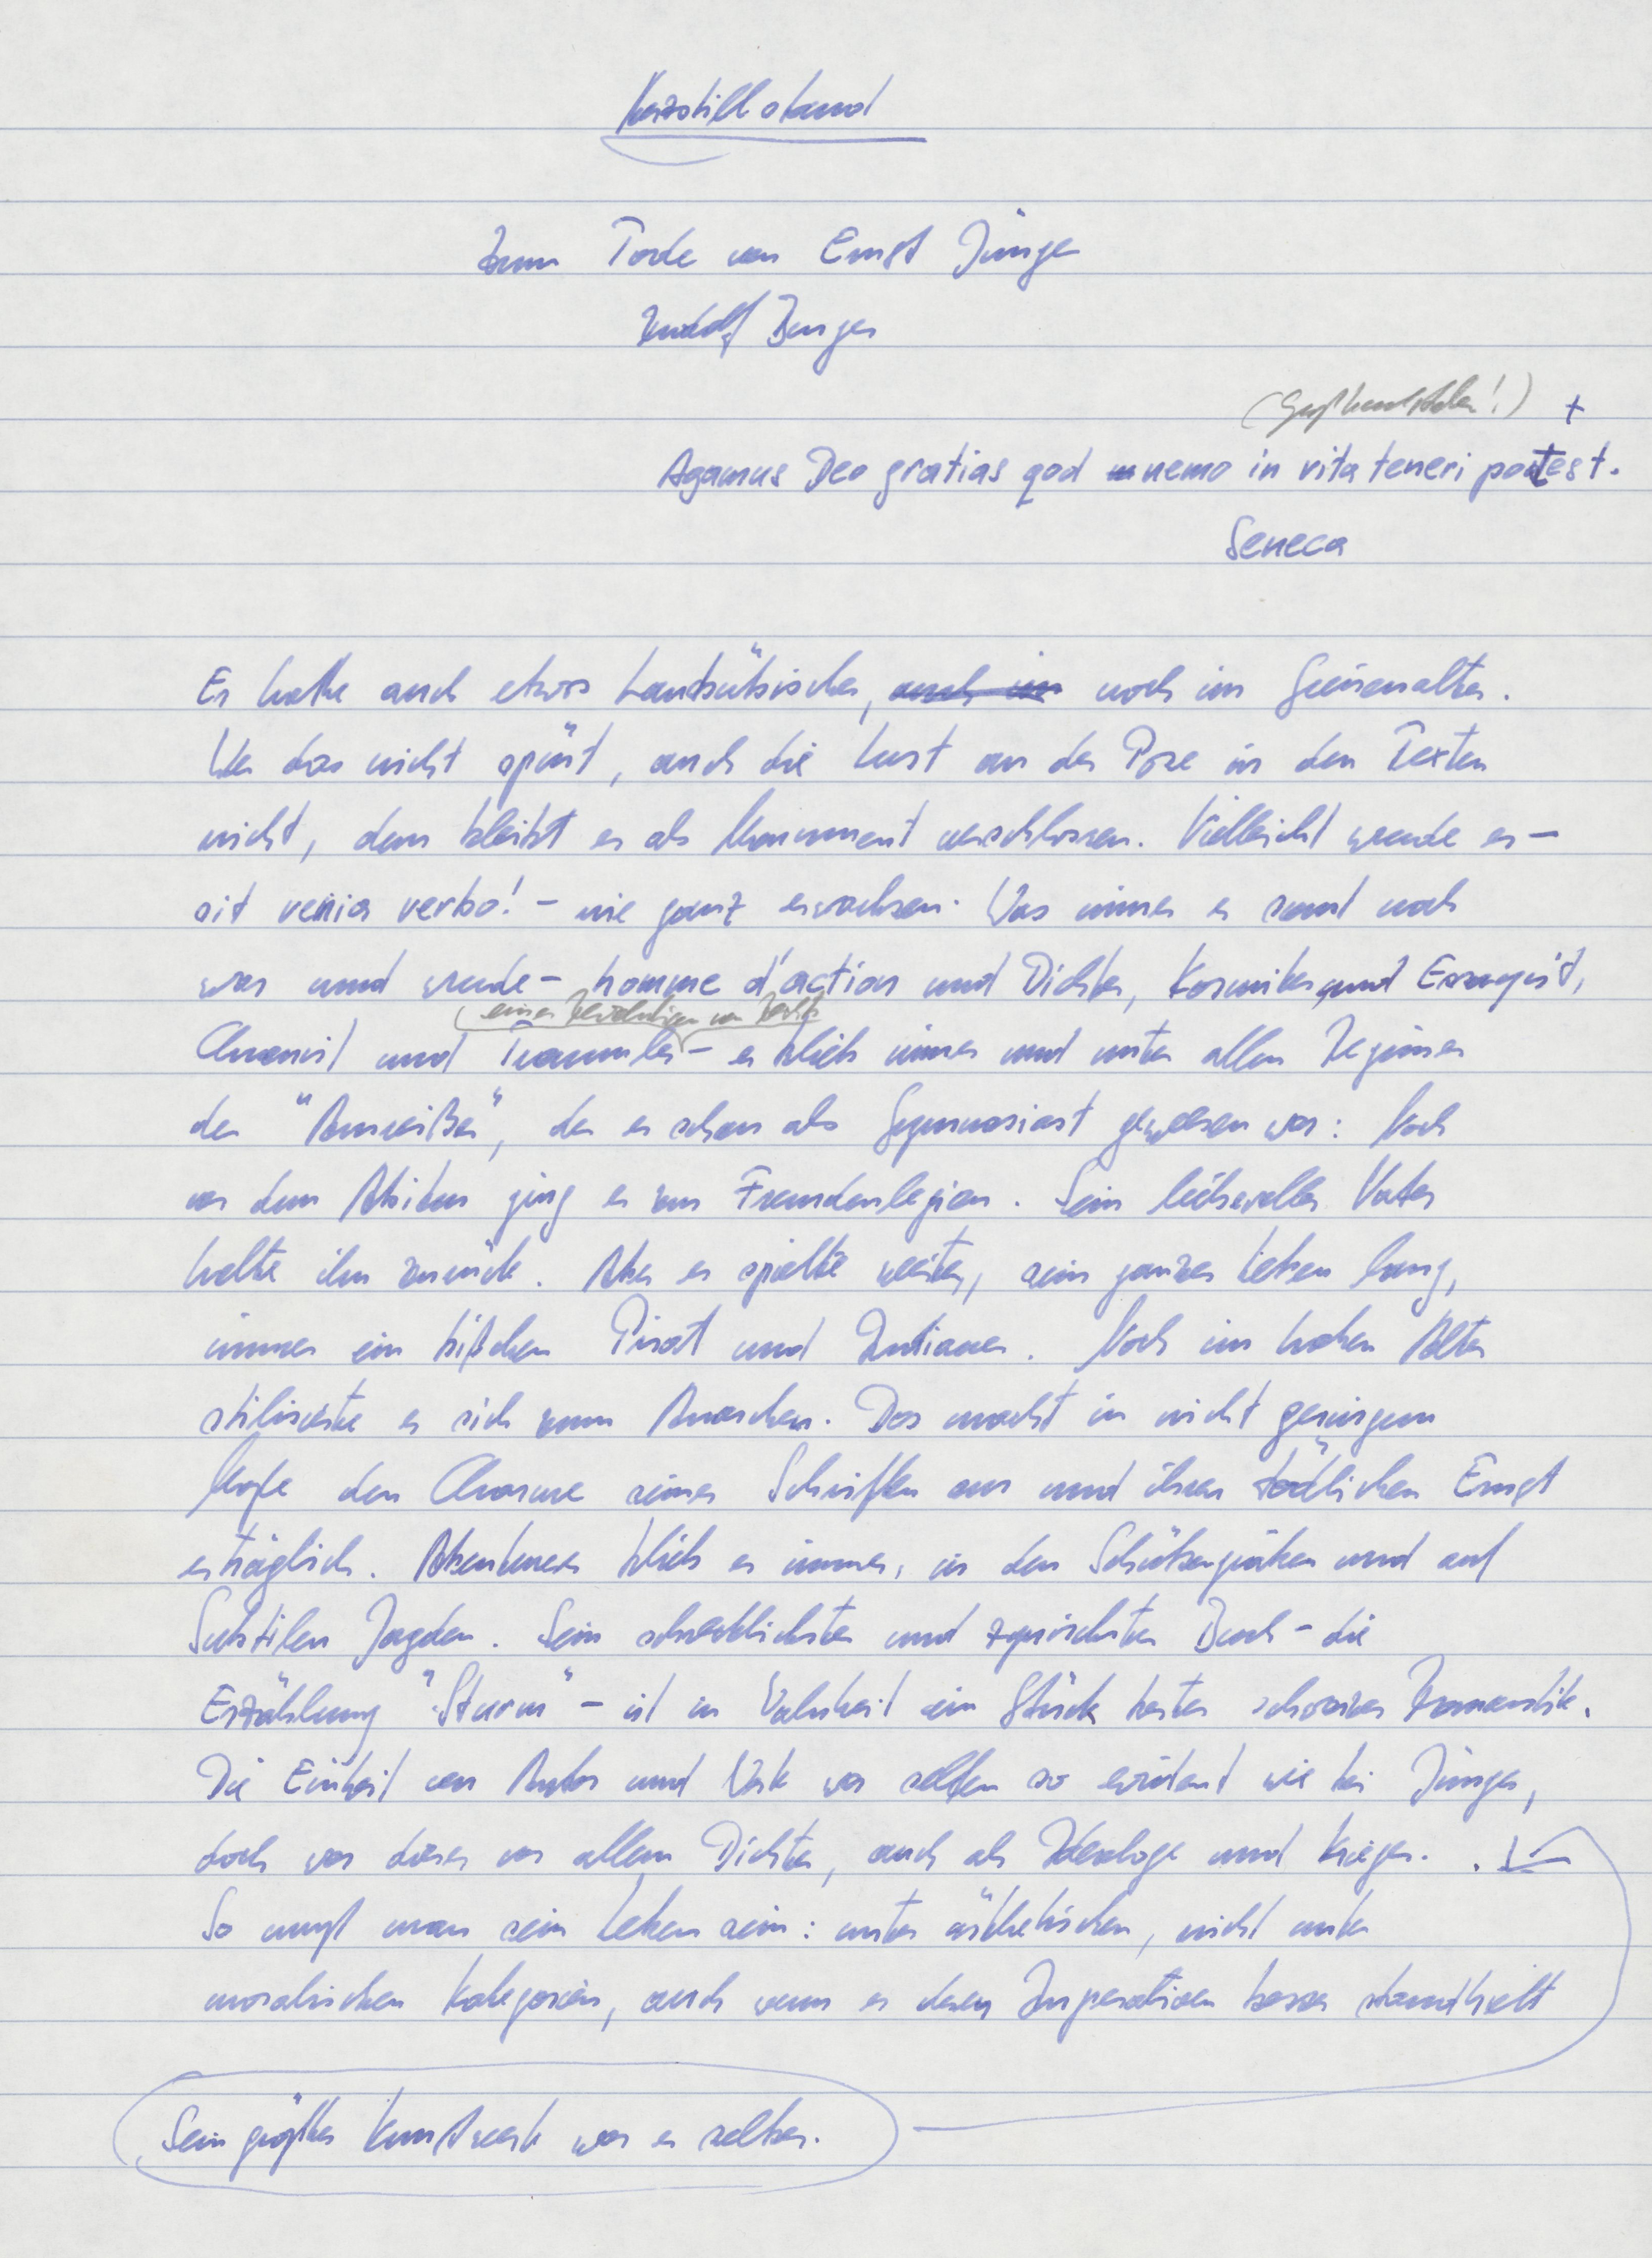 Herzstillstand
Zum Tode von Ernst Jünger
Rudolf Burger
Agamus Deo gratias qod nemo in vita teneri potest.
Seneca
Er hatte auch etwas Lausbübisches, auch im noch im Greisenalter.
Wer das nicht spürt, auch die Lust an der Pose in den Texten
nicht, dem bleibt er als Monument verschlossen. Vielleicht wurde er –
sit venia verbo! – nie ganz erwachsen. Was immer er sonst noch
war und wurde – homme d'action und Dichter, Kosmiker und Essayist,
Anarch und Traumtänzer – er blieb immer und unter allen Regimes
der "Ausreißer", der er schon als Gymnasiast gewesen war: Noch
vor dem Abitur ging er zur Fremdenlegion. Sein liebevoller Vater
holte ihn zurück. Aber er spielte weiter, sein ganzes Leben lang,
immer ein bißchen Pirat und Indianer. Noch im hohen Alter
stilisierte er sich zum Anarchen. Das macht in nicht geringem
Maße den Charme seiner Schriften aus und ihren tödlichen Ernst
erträglich. Abenteurer blieb er immer, in den Schützengräben und auf
Subtilen Jagden. Sein schrecklichstes und zynischstes Buch – die
Erzählung "Sturm" – ist in Wahrheit ein Stück bester schwarzer Romantik.
Die Einheit von Autor und Werk war selten so evident wie bei Jünger,
doch war dieser vor allem Dichter, auch als Ideologe und Krieger.
So muß man sein Leben sein: unter ästhetischen, nicht unter
moralischen Kategorien, auch wenn er deren Imperativen besser standhielt
Sein größtes Kunstwerk war er selber.